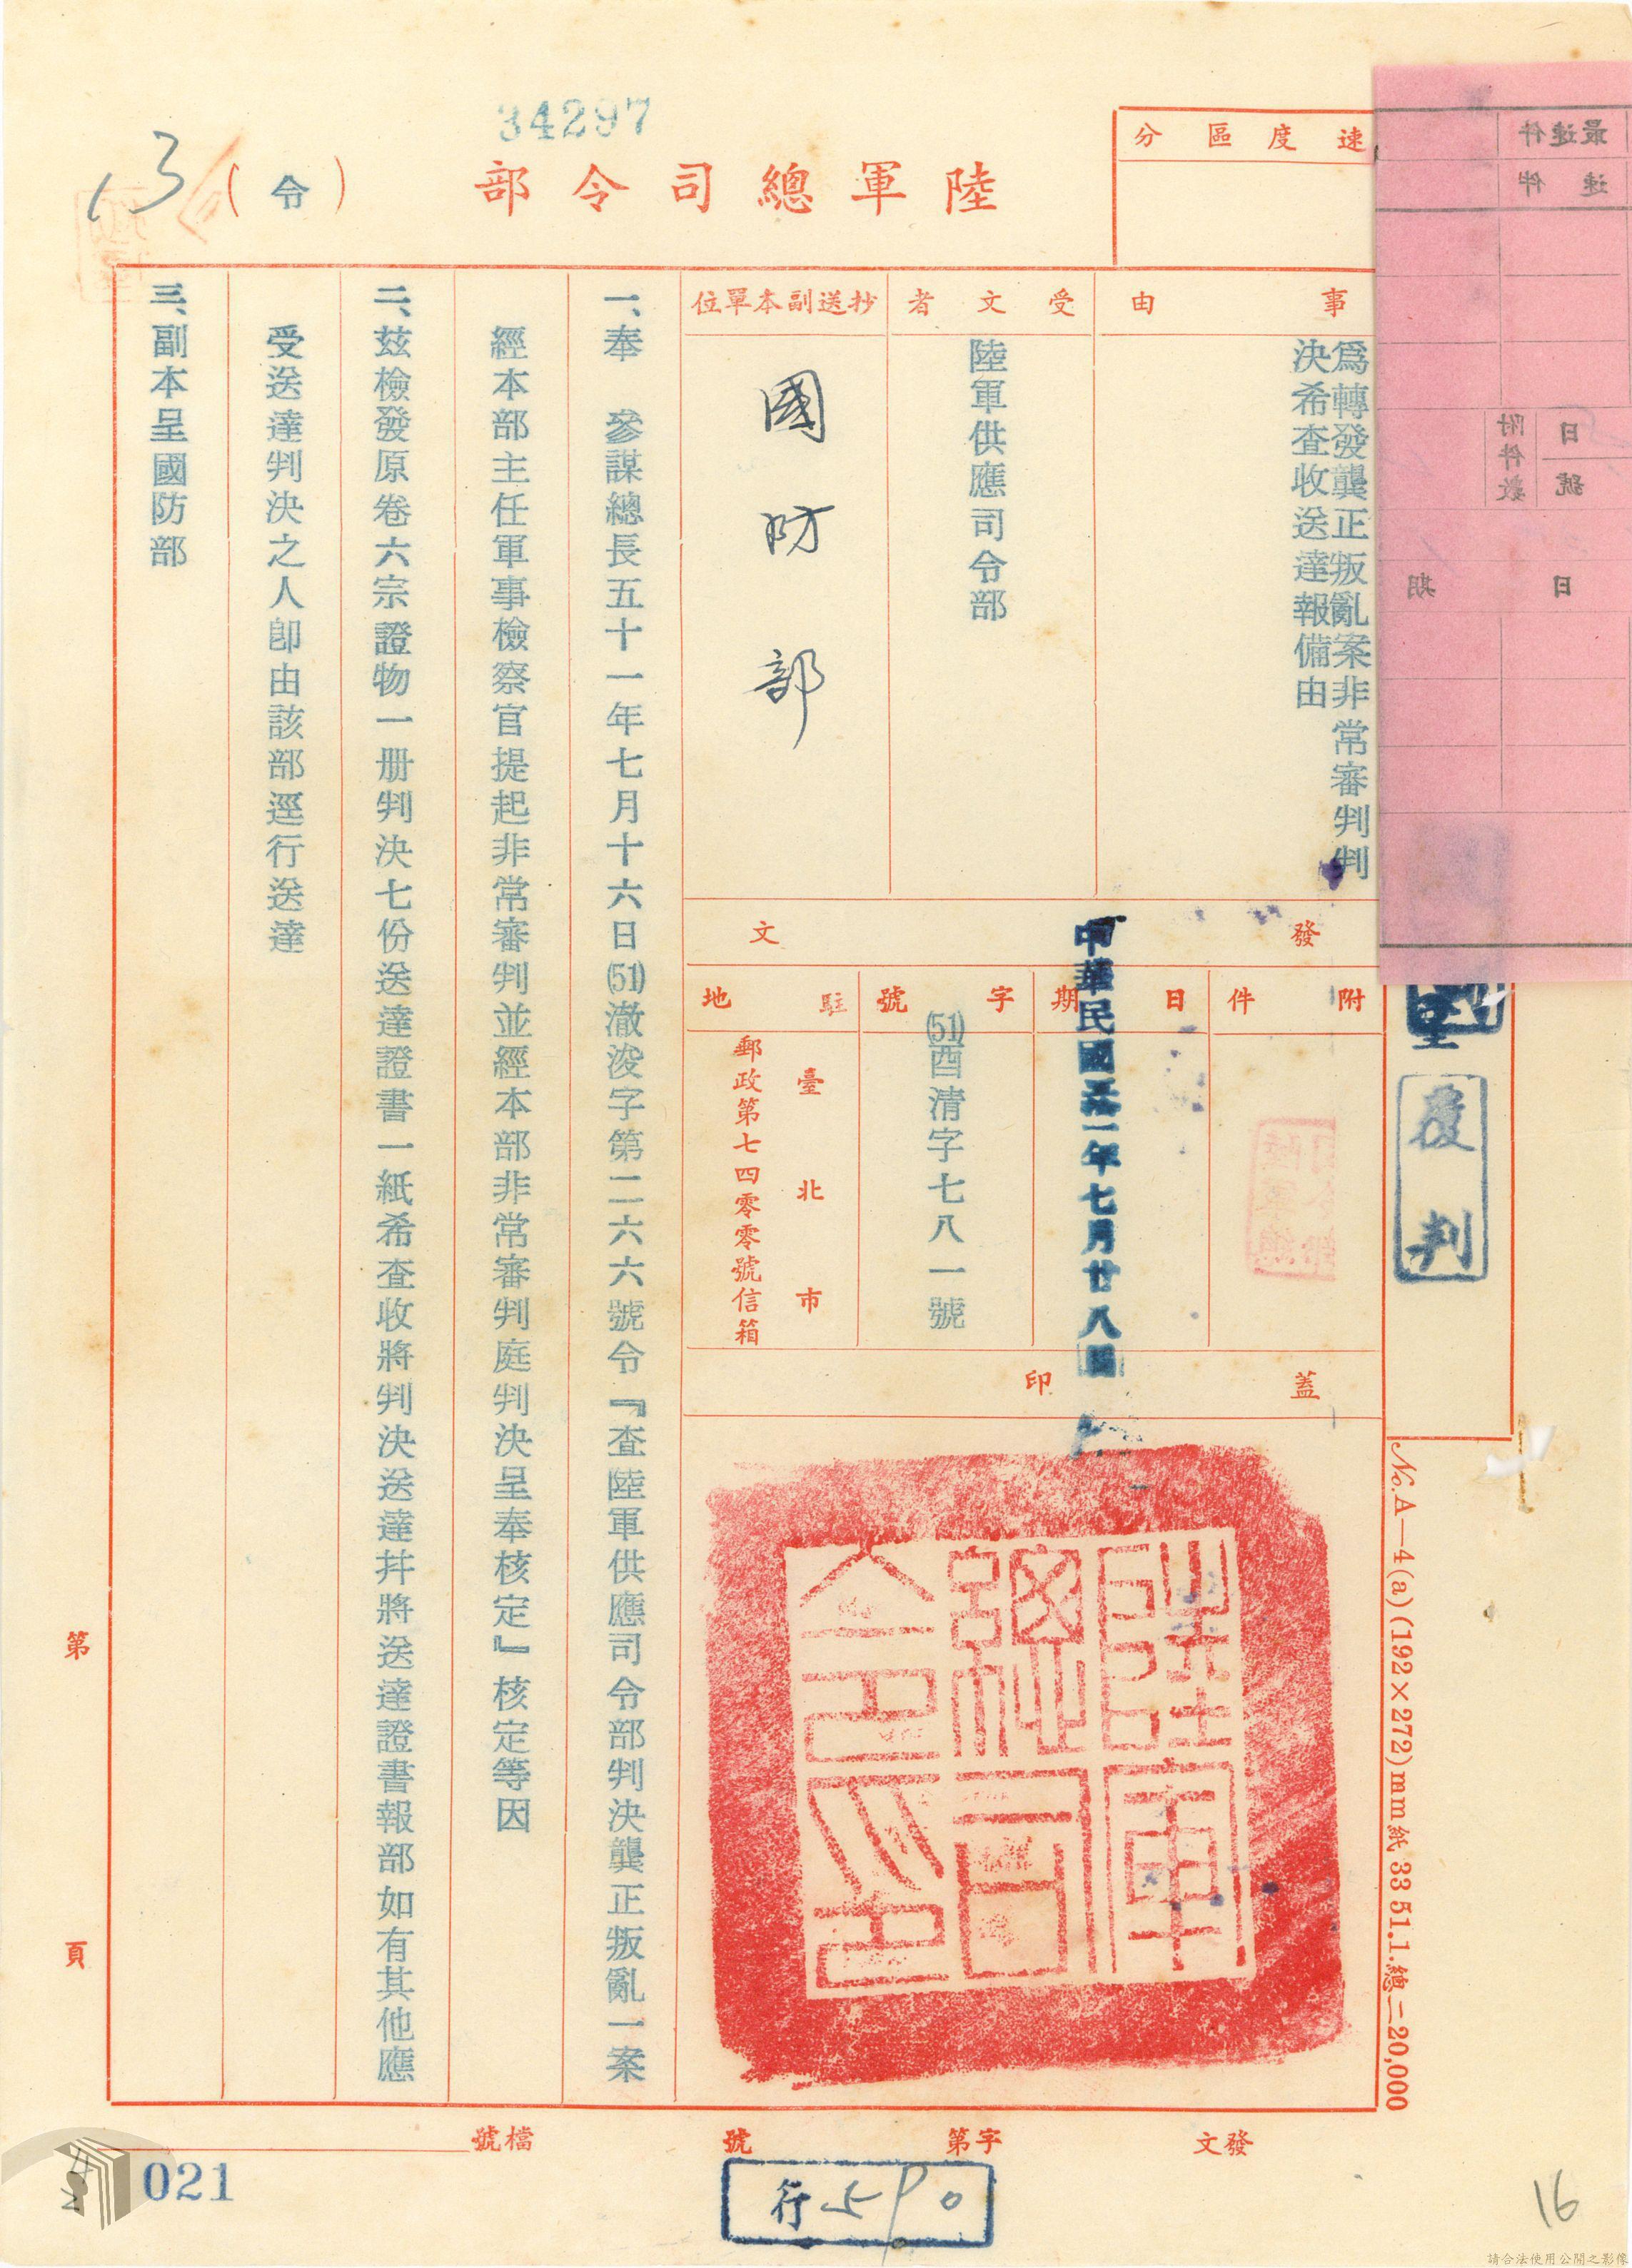 34297
陸軍總司令部
（令）
13
速度區分
最速件
速件
附件數
日
號
日期
事由
為轉發龔正叛亂案非常審判判
決希查收送達報備由
受文者
陸軍供應司令部
抄送副本單位
國防部
發文
附件
日期
中華民國五十一年七月廿八日
字號
(51)酉清字七八一號
駐地
臺北市
郵政第七四零零號信箱
蓋印
陸軍總司令部印
覆判
一、奉　參謀總長五十一年七月十六日(51)澈浚字第二六六號令『查陸軍供應司令部判決龔正叛亂一案
經本部主任軍事檢察官提起非常審判並經本部非常審判庭判決呈奉核定』核定等因
二、茲檢發原卷六宗證物一册判決七份送達證書一紙希查收將判決送達并將送達證書報部如有其他應
受送達判決之人卽由該部逕行送達
三、副本呈國防部
No.A—4(a)(192×272)mm紙33 51.1.總二20,000
第頁
發文
字第
號
檔號
021
16
請合法使用公開之影像